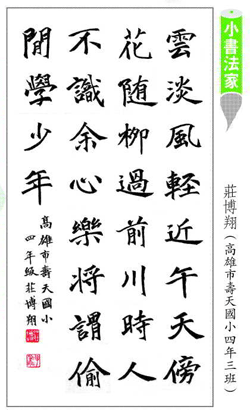 小書法家
莊博翔(高雄市壽天國小四年三班)
雲淡風輕近午天傍
花随柳過前川時人
不識余心樂將謂偷
閒學少年
高雄市壽天國小
四年級莊博翔